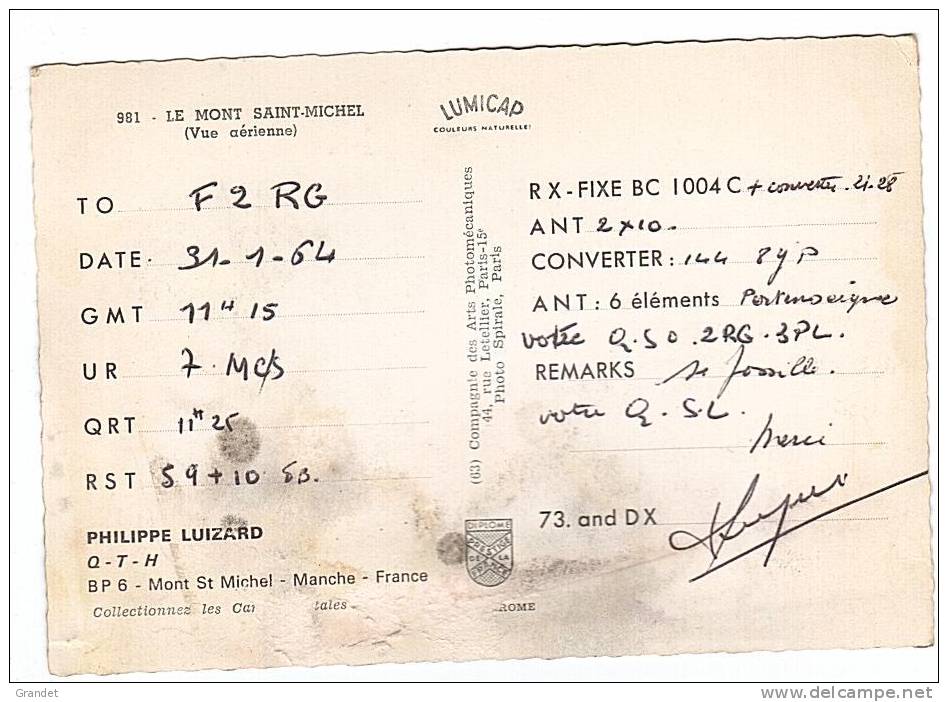 981 - LE MONT SAINT-MICHEL
(Vue aérienne)
LUMICAP
COULEURS NATURELLES
TO F2RG
DATE 31-1-64
GMT 11H15
UR 7 Mc/s
QRT 11H25
RST 59+10 dB.
PHILIPPE LUIZARD
Q-T-H
BP 6 - Mont St Michel - Manche - France
Collectionnez les Car tales
ROME
(63) Compagnie des Arts Photomécaniques
44, rue Letellier, Paris-15e
Photo Spirale, Paris
DIPLOME
PRESTIGE
DE LA
FRANCE
RX-FIXE BC 1004C + converter 21-28
ANT 2x10-
CONVERTER: 144
ANT: 6 éléments Portenseigne
votre Q.SO.2RG.3PL.
REMARKS se possible.
votre Q.S.L.
Merci
73. and DX
Grandet
www.delcampe.net